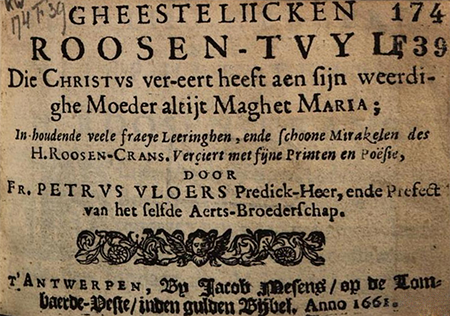 GHEESTELIICKEN 174
ROOSEN-TVYL F39
Die CHRISTVS ver-eert heeft aen sijn weerdi-
ghe Moeder altijt Maghet MARIA;
In-houdende veele fraeye Leeringhen, ende schoone Mirakelen des
H. ROOSEN-CRANS. Verçiert met fijne Printen en Poësie,
DOOR
FR. PETRVS VLOERS Predick-Heer, ende Prefect
van het selfde Aerts-Broederschap.
T'ANTWERPEN, By Jacob Mesens/ op de Lom-
baerde-Veste/ inden gulden Bybel. Anno 1661.